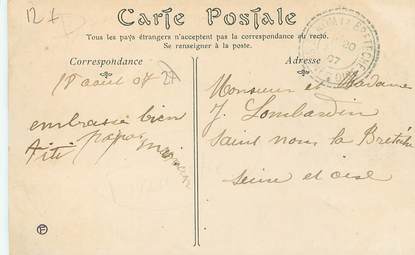 12 f
Carte Postale
Tous les pays étrangers n'acceptent pas la correspondance au recto.
Se renseigner à la poste.
Correspondance
Adresse
18 aout 07
embrasse bien
Titi papa
maman
Monsieur et Madame
J. Lombardin
Saint nom la Bretèche
Seine et oise
20
07
F